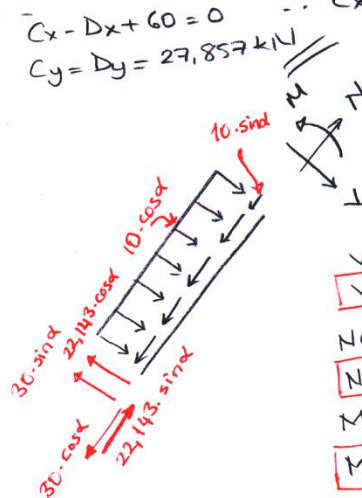 Cx - Dx + 60 = 0
Cy = Dy = 27,857 kN
∴ Cx
M
N
10.sinα
10.cosα
22,143.cosα
30.sinα
30.cosα
22,143.sinα
N
M